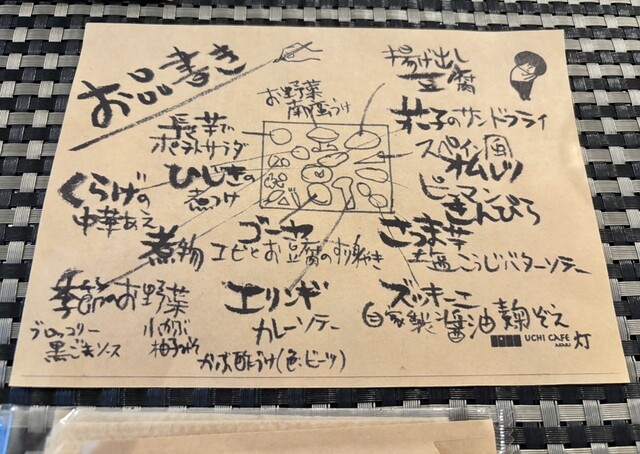 お品書き
お野菜
南蛮づけ
揚げ出し
豆腐
長芋で
ポテトサラダ
茄子のサンドフライ
スペイン風
オムレツ
ひじきの
煮つけ
くらげの
中華あえ
ピーマン
きんぴら
煮物
ゴーヤ
エビとお豆腐のすり身やき
さつま芋
塩こうじバターソテー
季節のお野菜
ブロッコリー
黒ごまソース
小かぶ
柚子みそ
エリンギ
カレーソテー
かぶ酢づけ(色:ビーツ)
ズッキーニ
自家製醤油麹ぞえ
UCHI CAFE
AKARI
灯